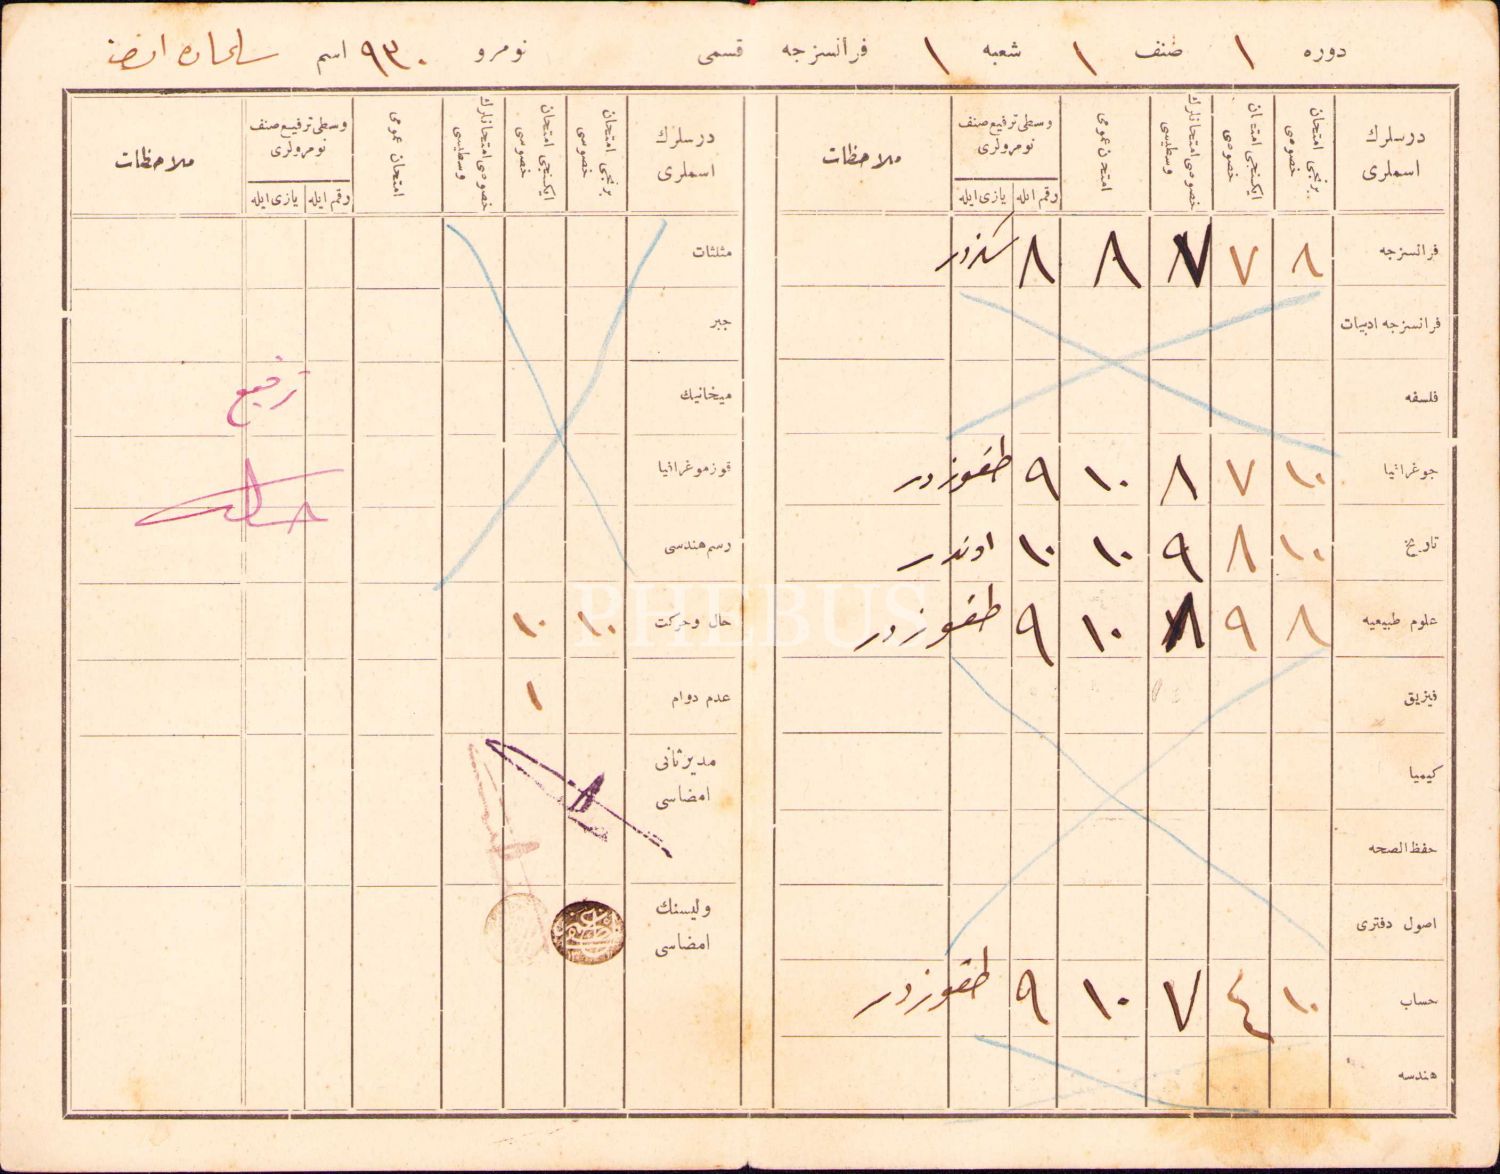 دوره ١ صنف ١ شعبه ١ فرانسزجه قسمی نومرو ٩٣٠ اسم
درسلرك اسملری
برنجی امتحان خصوصی
ایکنجی امتحان خصوصی
خصوصی امتحانلرك وسطیسی
امتحان عمومی
وسطی ترفیع صنف نومرولری
رقم ایله یازی ایله
ملاحظات
فرانسزجه ٨ ٧ ٨ ٨ ٨ سکزدر
فرانسزجه ادبیات
فلسفه
جوغرافیا ١٠ ٧ ٨ ١٠ ٩ طقوزدر
تاریخ ١٠ ٨ ٩ ١٠ ١٠ اوندر
علوم طبیعیه ٨ ٩ ٨ ١٠ ٩ طقوزدر
فیزیق
کیمیا
حفظ الصحه
اصول دفتری
حساب ١٠ ٤ ٧ ١٠ ٩ طقوزدر
هندسه
درسلرك اسملری
برنجی امتحان خصوصی
ایکنجی امتحان خصوصی
خصوصی امتحانلرك وسطیسی
امتحان عمومی
وسطی ترفیع صنف نومرولری
رقم ایله یازی ایله
ملاحظات
مثلثات
جبر
میخانیك
ترفیع
قوزموغرافیا
رسم هندسی
حال وحرکت ١٠ ١٠
عدم دوام ١
مدیر ثانی
امضاسی
ولیسنك
امضاسی
PHEBUS